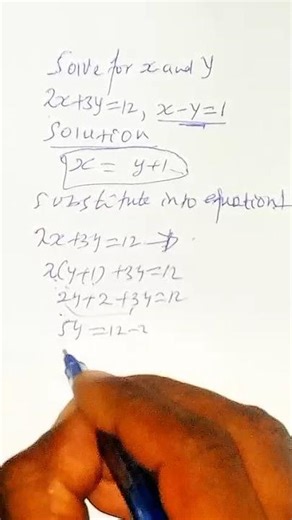 Solve for x and y
2x+3y=12, x-y=1
Solution
x = y+1
Substitute into equation 1
2x+3y=12
2(y+1)+3y=12
2y+2+3y=12
5y=12-2